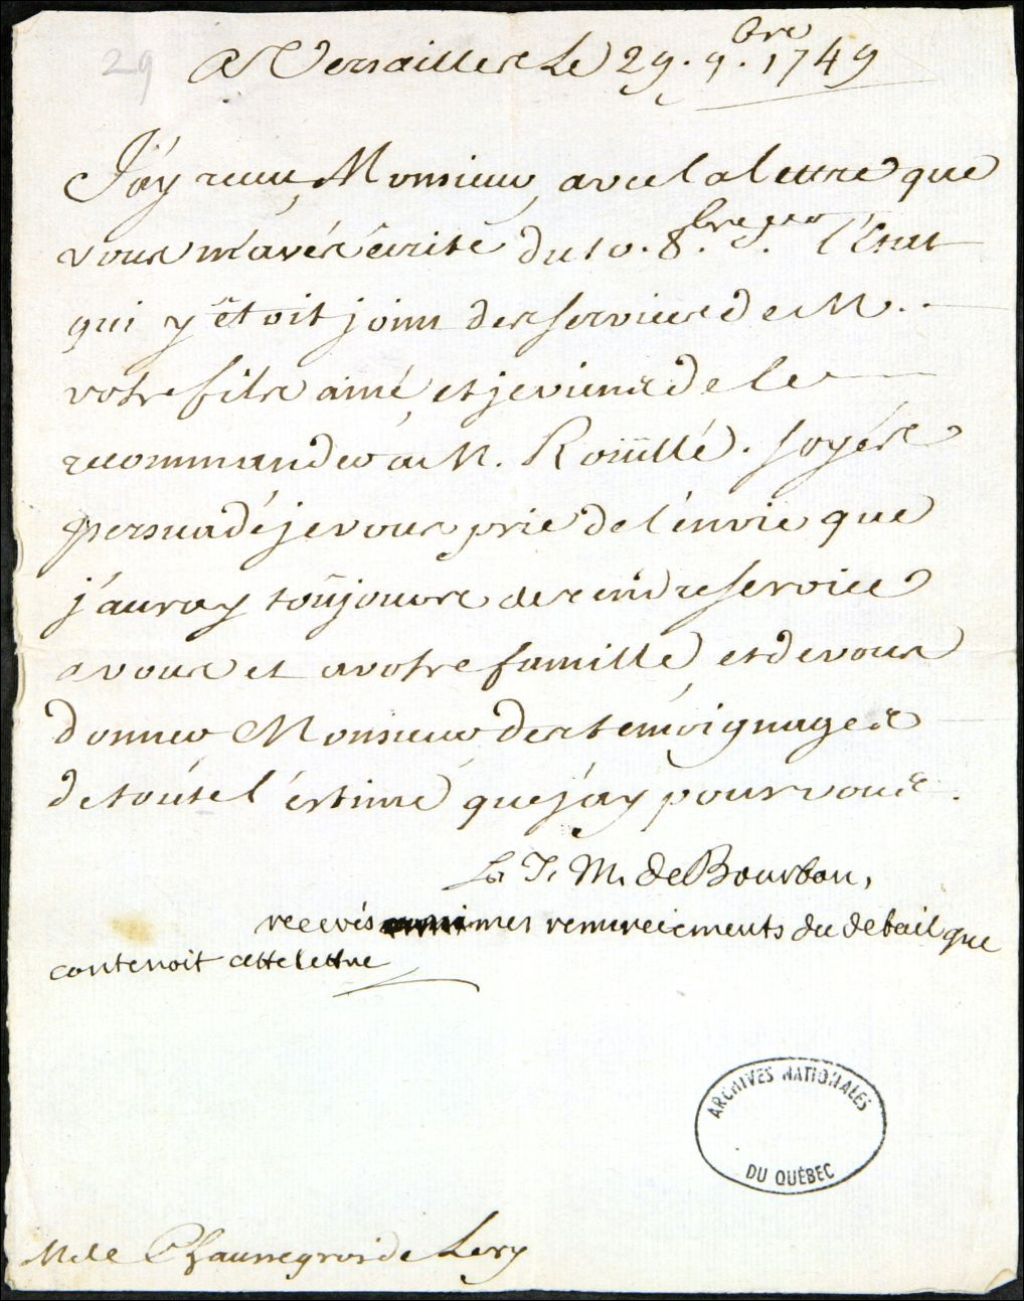 29
A Versailles Le 29. 9.bre 1749
J'ay receu, Monsieur, avec la lettre que
vous m'avés écrite du 10. 8.bre der l'Etat
qui y êtoit joint des services de M.
votre fils ainé, et je viens de le
recommander a M. Roüillé. Soyés
persuadé je vous prie de l'envie que
j'auray toûjours de rendre service
a vous et a votre famille, et de vous
donner Monsieur des témoignages
de toute l'estime que j'ay pour vous.
L. J. M. de Bourbon,
recevés mes remerciements du detail que
contenoit cette lettre
ARCHIVES NATIONALES
DU QUÉBEC
M. de Chaussegros de Lery